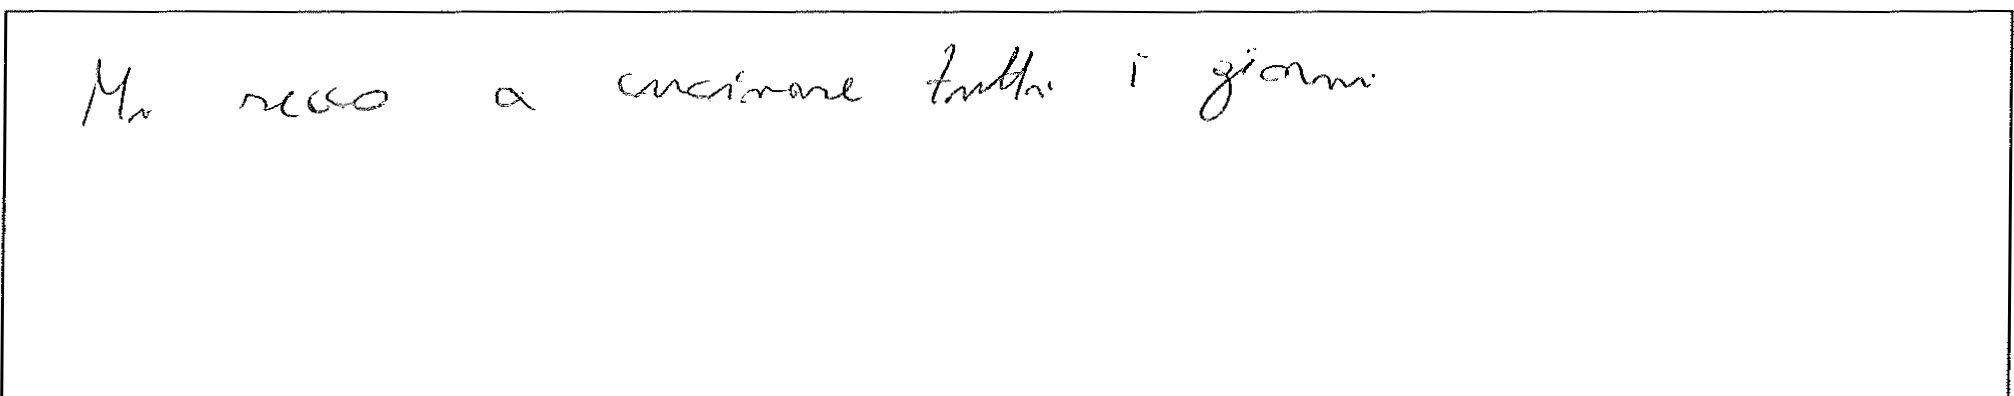 Mi recco a cucinare tutti i giorni